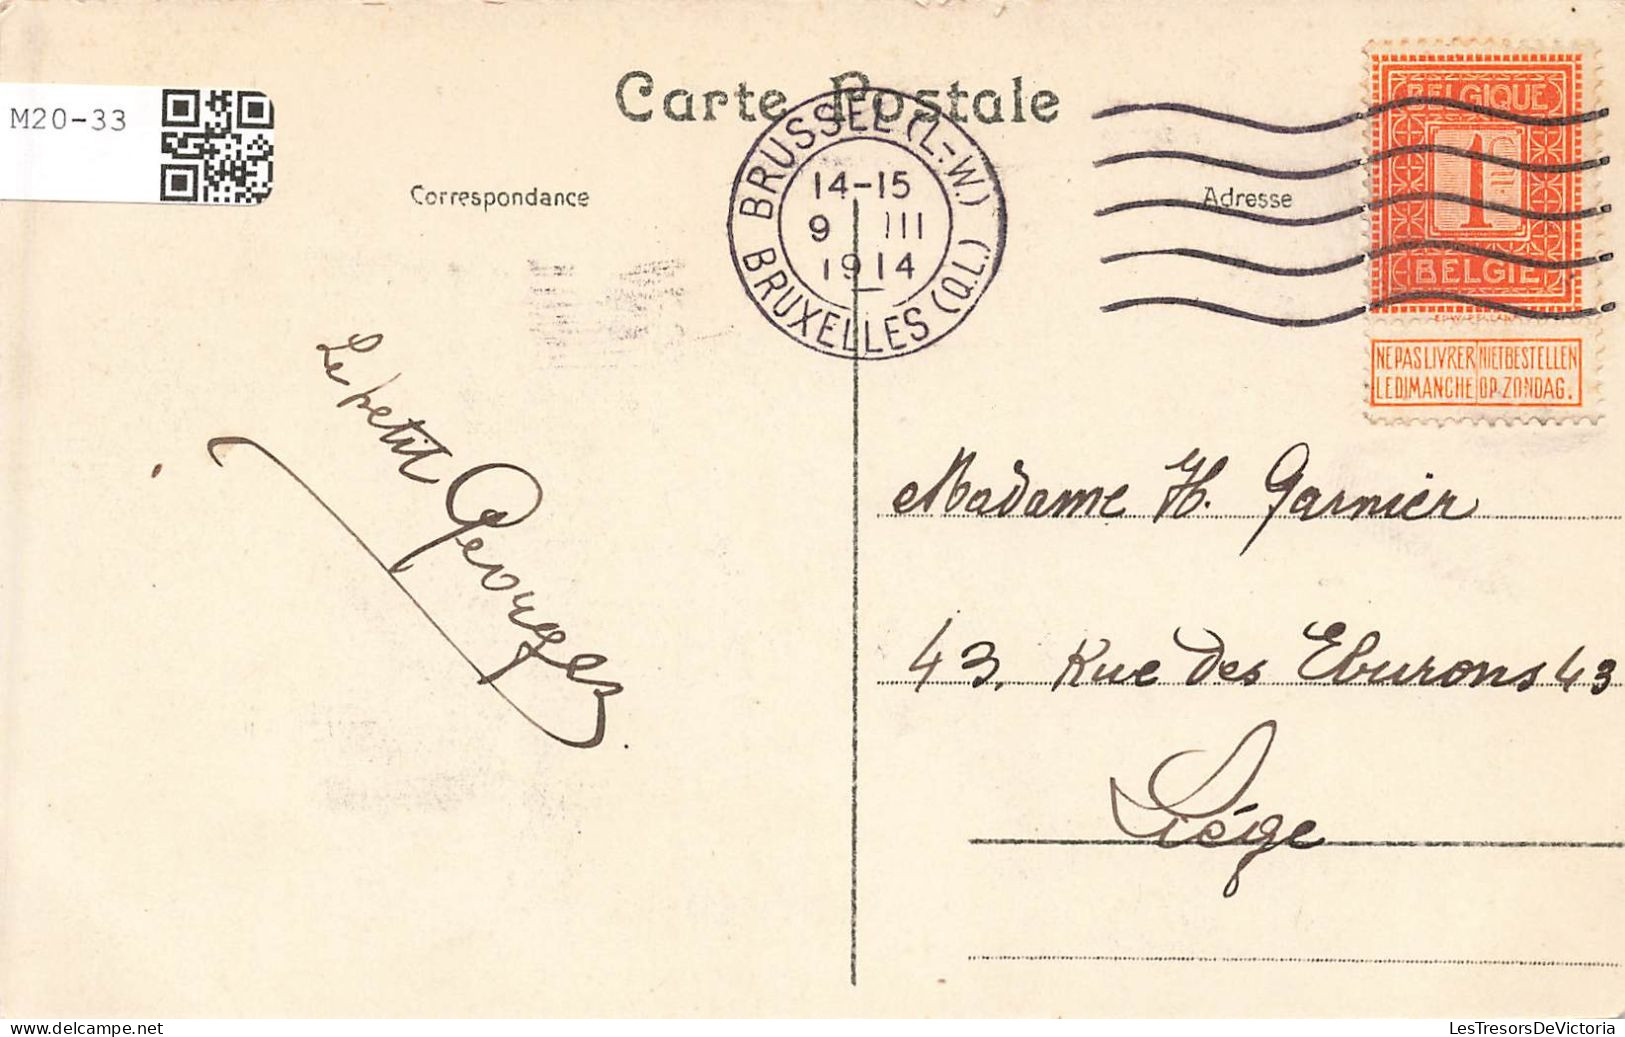 M20-33
Carte Postale
Correspondance
Adresse
BRUSSEL (L.-W.)
14-15
9 III
1914
BRUXELLES (Q.L.)
BELGIQUE
1 C
BELGIË
NE PAS LIVRER NIET BESTELLEN
LE DIMANCHE OP ZONDAG.
Le petit
Georges
Madame H. Garnier
43, Rue des Eburons 43
Liége
LesTresorsDeVictoria
LesTresorsDeVictoria.com